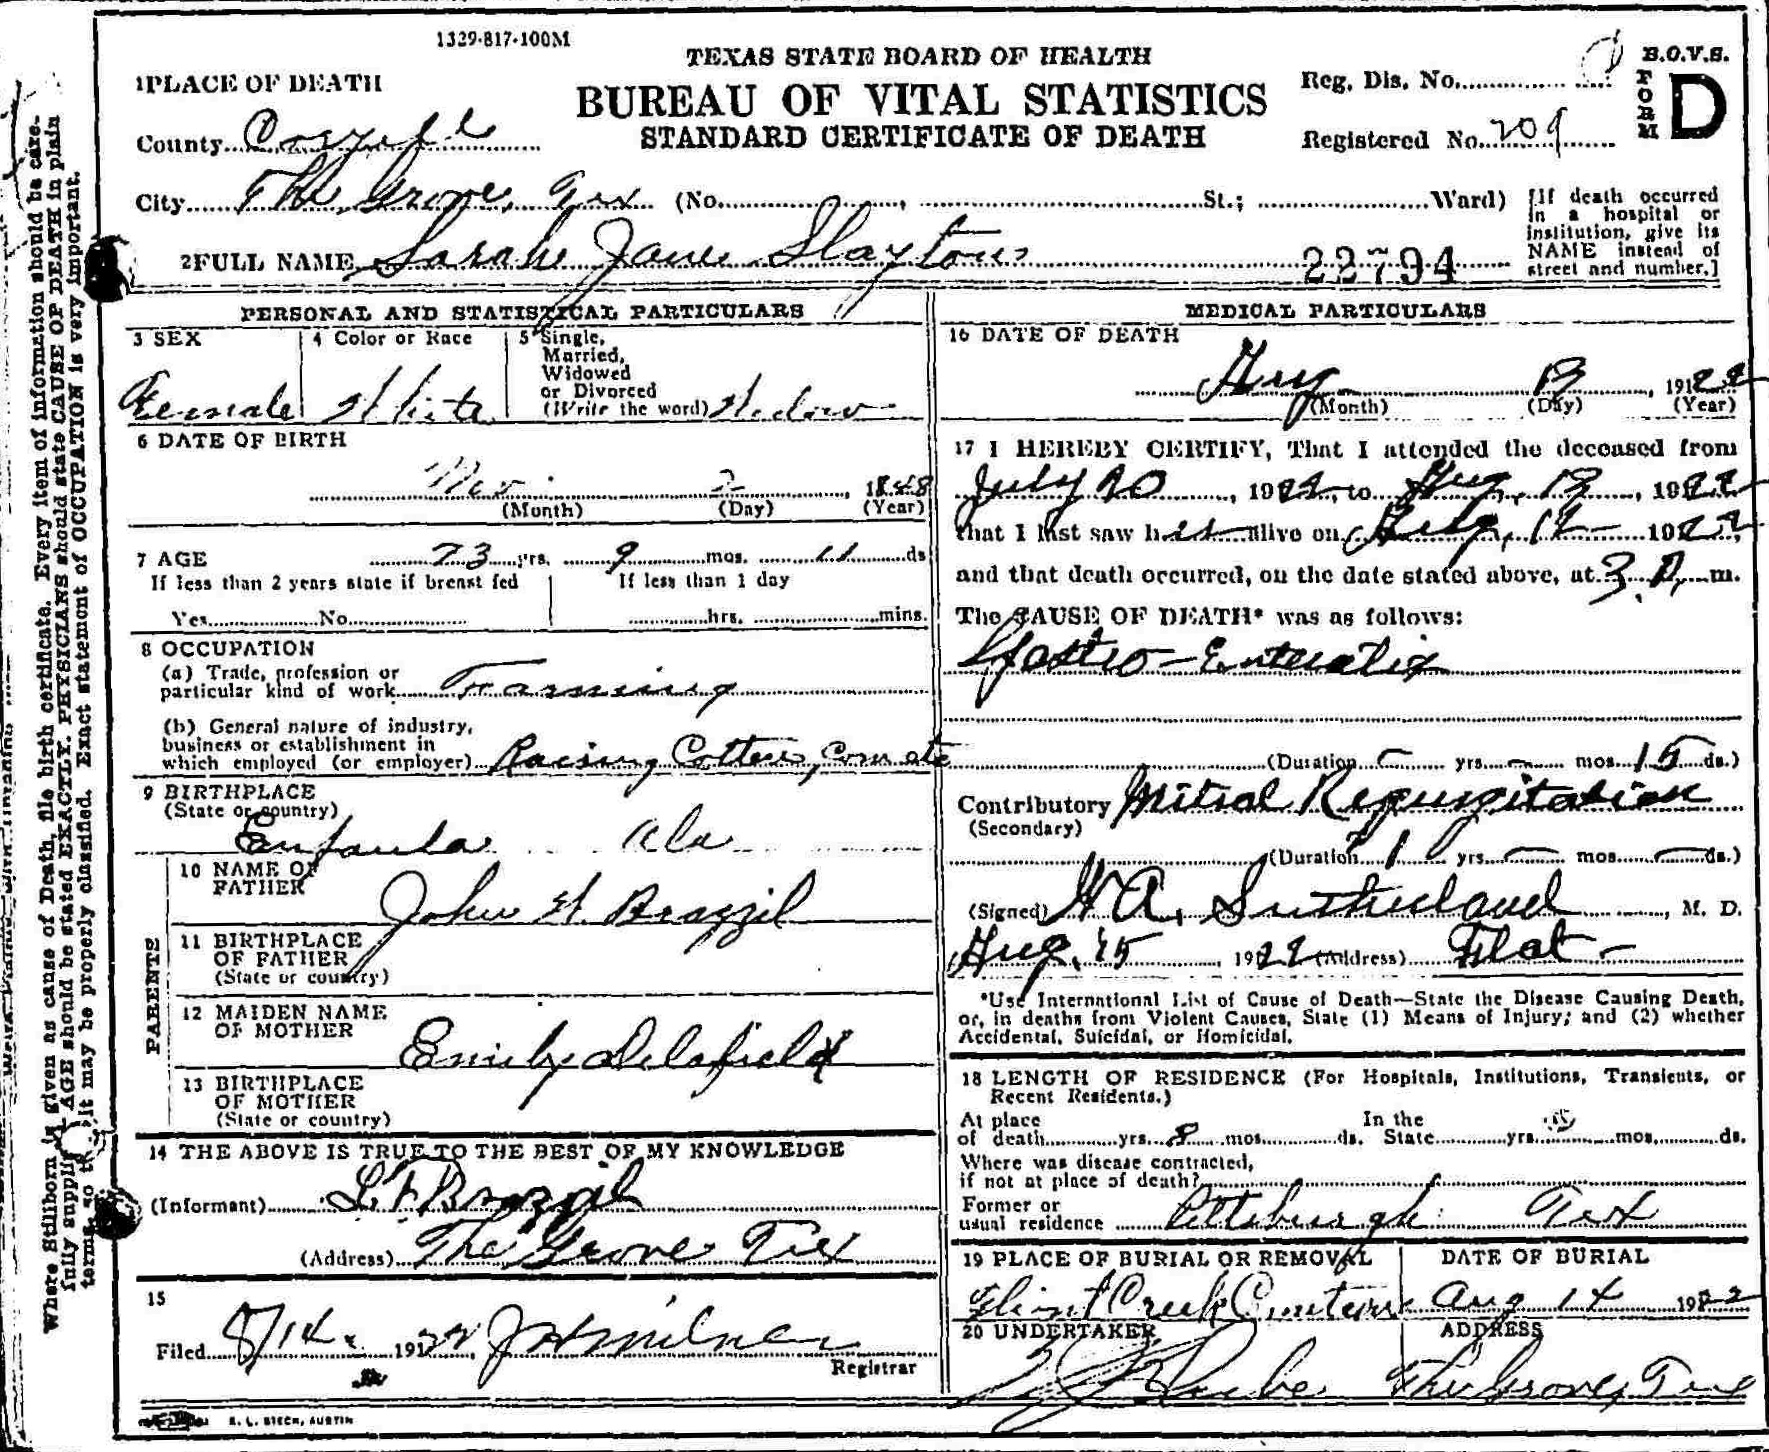 1329-817-100M
TEXAS STATE BOARD OF HEALTH
BUREAU OF VITAL STATISTICS
STANDARD CERTIFICATE OF DEATH
Reg. Dis. No.
Registered No. 209
B.O.V.S.
FORM D
1 PLACE OF DEATH
County Coryell
City The Grove, Tex (No. , St.; Ward)
[If death occurred in a hospital or institution, give its NAME instead of street and number.]
2 FULL NAME Sarah Jane Slayton 22794
PERSONAL AND STATISTICAL PARTICULARS
3 SEX
Female
4 Color or Race
White
5 Single, Married, Widowed or Divorced (Write the word) Widow
6 DATE OF BIRTH
Nov 2, 1848
(Month) (Day) (Year)
7 AGE 73 yrs. 9 mos. 11 ds
If less than 2 years state if breast fed
Yes No
If less than 1 day
hrs. mins.
8 OCCUPATION
(a) Trade, profession or
particular kind of work Farming
(b) General nature of industry,
business or establishment in
which employed (or employer) Raising Cotton, Corn etc
9 BIRTHPLACE
(State or country)
Eufaula Ala
PARENTS
10 NAME OF FATHER
John W Brazzil
11 BIRTHPLACE OF FATHER
(State or country)
12 MAIDEN NAME OF MOTHER
Emily Delafield
13 BIRTHPLACE OF MOTHER
(State or country)
14 THE ABOVE IS TRUE TO THE BEST OF MY KNOWLEDGE
(Informant) L F Brazzil
(Address) The Grove Tex
15
Filed 8/14 1922, J H Milner
Registrar
E. L. STECK, AUSTIN
MEDICAL PARTICULARS
16 DATE OF DEATH
Aug 13, 1922
(Month) (Day) (Year)
17 I HEREBY CERTIFY, That I attended the deceased from
July 20, 1922, to Aug, 13, 1922
that I last saw her alive on Aug, 12 1922,
and that death occurred, on the date stated above, at 3 P. m.
The CAUSE OF DEATH* was as follows:
Gastro-Enteratis
(Duration yrs. mos 15 ds.)
Contributory Mitral Regurgitation
(Secondary)
(Duration 1 yrs. mos. ds.)
(Signed) W A. Sutherland, M. D.
Aug. 15, 1922 (Address) Flat
*Use International List of Cause of Death—State the Disease Causing Death,
or, in deaths from Violent Causes, State (1) Means of Injury; and (2) whether
Accidental, Suicidal, or Homicidal.
18 LENGTH OF RESIDENCE (For Hospitals, Institutions, Transients, or
Recent Residents.)
At place of death yrs. 8 mos. ds.
In the State yrs. mos. ds.
Where was disease contracted,
if not at place of death?
Former or
usual residence Pittsburgh Tex
19 PLACE OF BURIAL OR REMOVAL
Flint Creek
DATE OF BURIAL
Aug 14 1922
20 UNDERTAKER
ADDRESS
The Grove, Tex
Where Stillborn is given as cause of Death, file birth certificate. Every item of information should be care-
fully supplied. AGE should be stated EXACTLY. PHYSICIANS should state CAUSE OF DEATH in plain
terms, so it may be properly classified. Exact statement of OCCUPATION is very important.